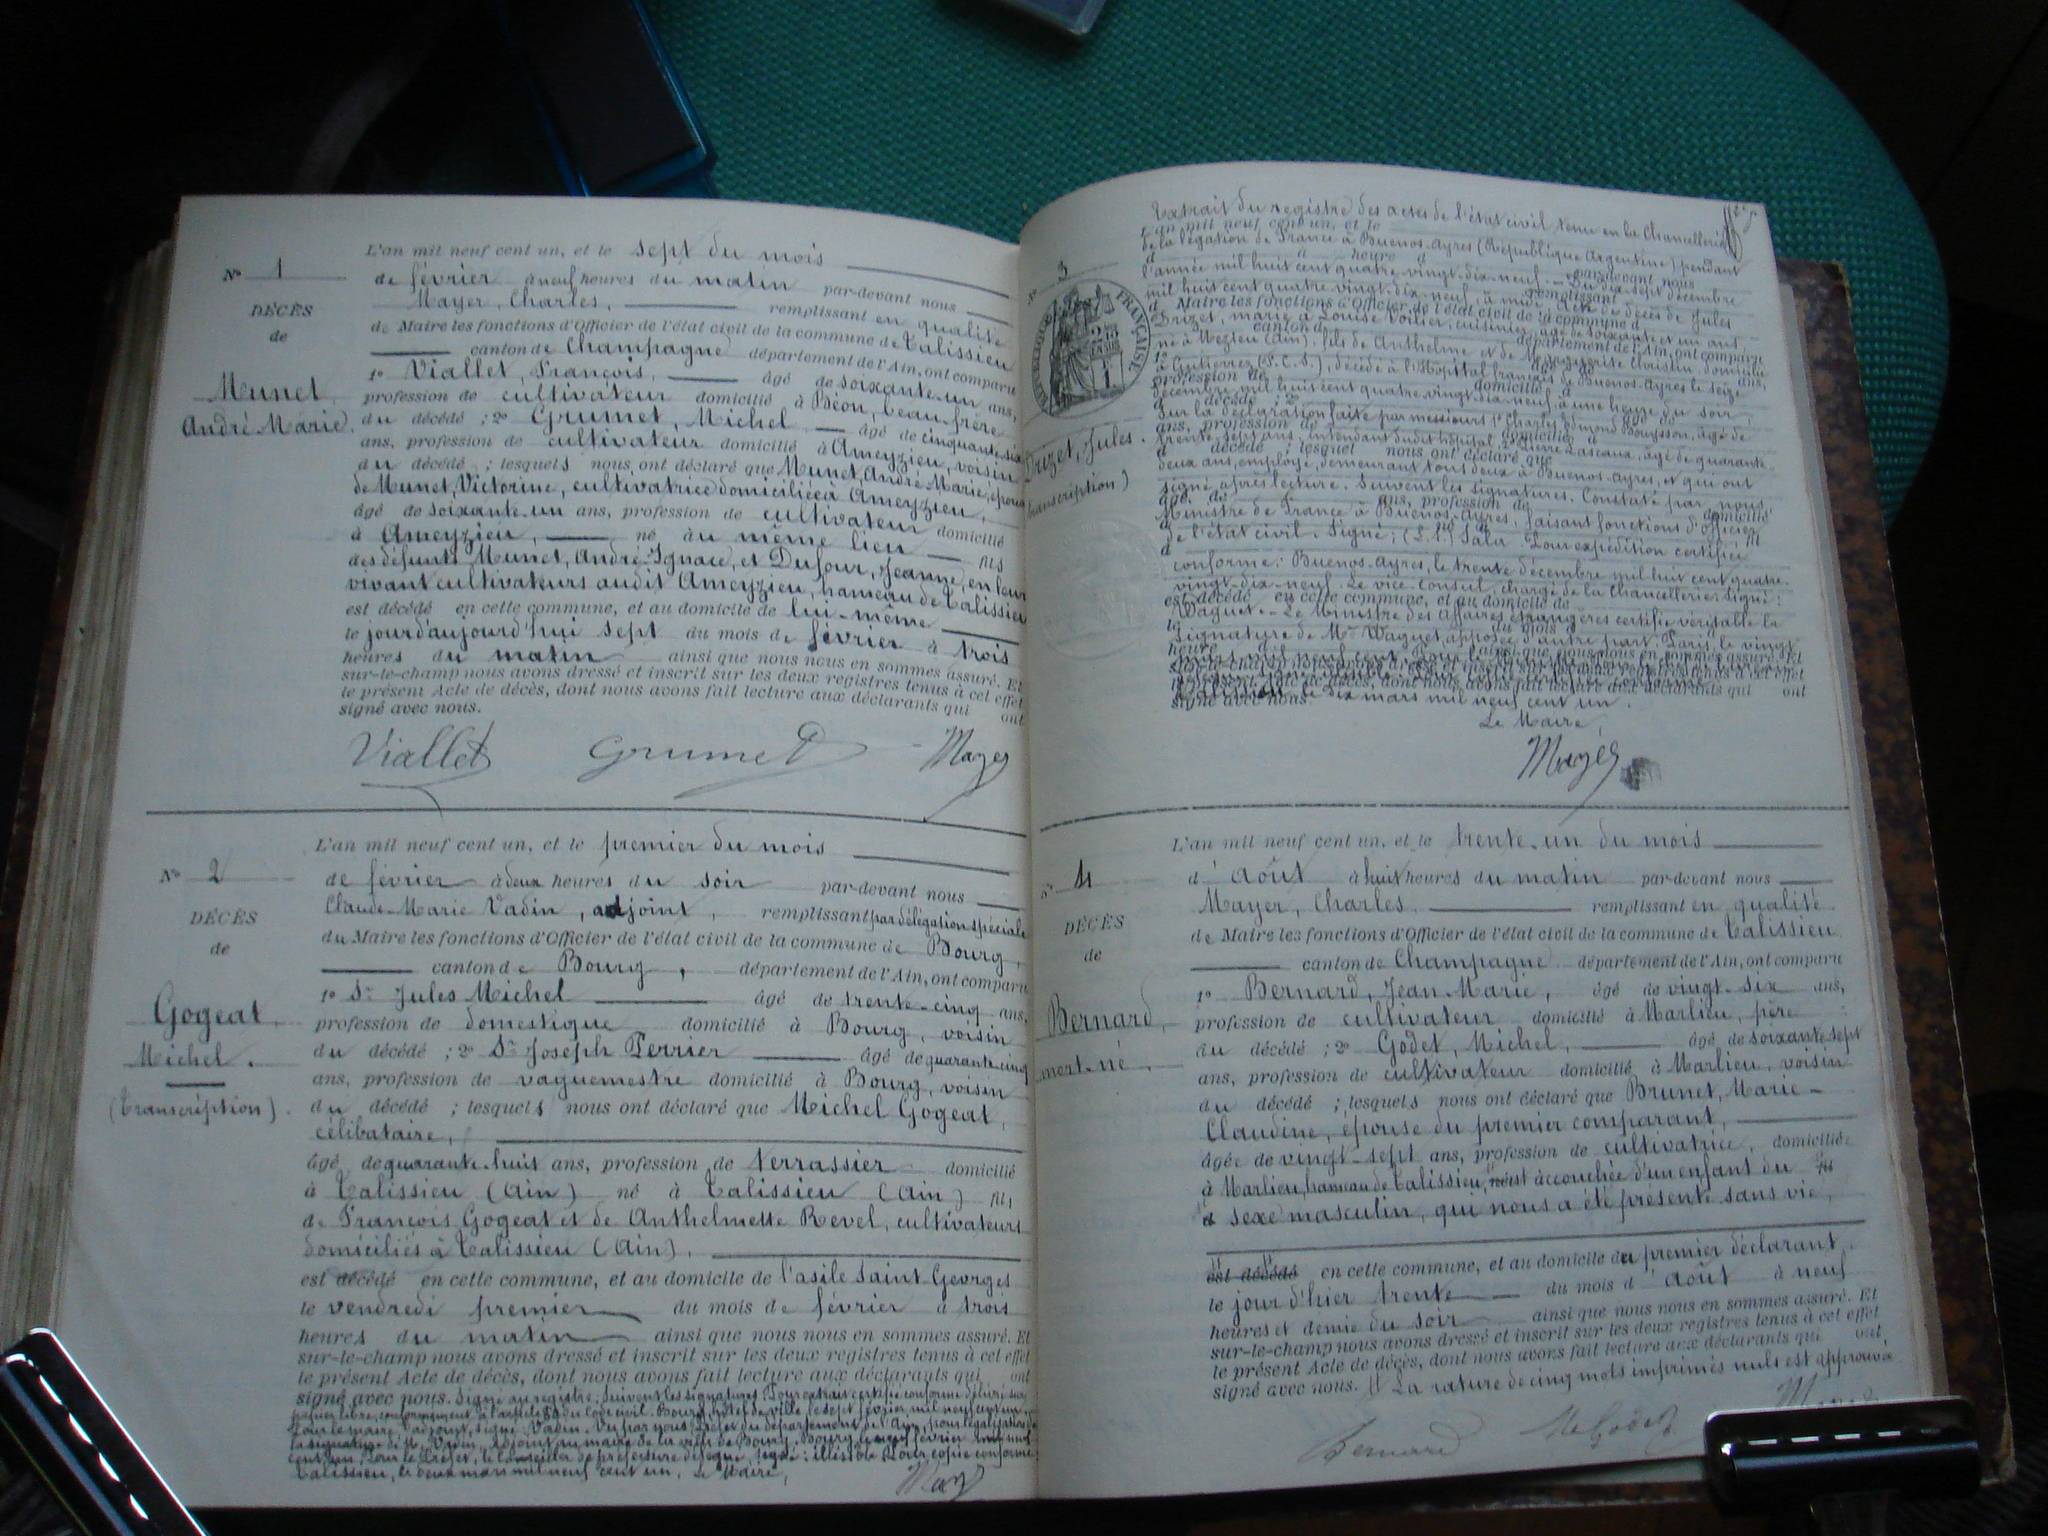 N° 1
DÉCÈS
de
Munet
André Marie.
L'an mil neuf cent un, et le sept du mois
de février à neuf heures du matin par-devant nous
Mayer, Charles, remplissant en qualité
de Maire les fonctions d'Officier de l'état civil de la commune de Talissieu
canton de Champagne département de l'Ain, ont comparu
1° Viallet, François, âgé de soixante-un ans,
profession de cultivateur domicilié à Béon, beau-frère
du décédé ; 2° Grumet, Michel âgé de cinquante-six
ans, profession de cultivateur domicilié à Ameyzieu, voisin
du décédé ; lesquels nous ont déclaré que Munet, André Marie, époux
de Munet, Victorine, cultivatrice domiciliée à Ameyzieu,
âgé de soixante-un ans, profession de cultivateur domicilié
à Ameyzieu, né au même lieu fils
des défunts Munet, André-Ignace, et Dufour, Jeanne, en leur
vivant cultivateurs audit Ameyzieu, hameau de Talissieu
est décédé en cette commune, et au domicile de lui-même
le jourd'aujourd'hui sept du mois de février à trois
heures du matin ainsi que nous nous en sommes assuré. Et
sur-le-champ nous avons dressé et inscrit sur les deux registres tenus à cet effet
le présent Acte de décès, dont nous avons fait lecture aux déclarants qui ont
signé avec nous.
Viallet Grumet Mayer
N° 2
DÉCÈS
de
Gogeat,
Michel.
(Transcription).
L'an mil neuf cent un, et le premier du mois
de février à deux heures du soir par-devant nous
Claude-Marie Vadin, adjoint, remplissant par délégation spéciale
du Maire les fonctions d'Officier de l'état civil de la commune de Bourg,
canton de Bourg, département de l'Ain, ont comparu
1° Sr Jules Michel âgé de trente-cinq ans,
profession de domestique domicilié à Bourg, voisin
du décédé ; 2° Sr Joseph Perrier âgé de quarante-cinq
ans, profession de vaguemestre domicilié à Bourg, voisin
du décédé ; lesquels nous ont déclaré que Michel Gogeat,
célibataire,
âgé de quarante-huit ans, profession de terrassier domicilié
à Talissieu (Ain) né à Talissieu (Ain) fils
de François Gogeat et de Anthelmette Revel, cultivateurs
domiciliés à Talissieu (Ain),
est décédé en cette commune, et au domicile de l'asile Saint-Georges
le vendredi premier du mois de février à trois
heures du matin ainsi que nous nous en sommes assuré. Et
sur-le-champ nous avons dressé et inscrit sur les deux registres tenus à cet effet
le présent Acte de décès, dont nous avons fait lecture aux déclarants qui ont
signé avec nous. Signé au registre : Suivent les signatures. Pour extrait certifié conforme délivré sur
papier libre, conformément à l'article 80 du Code civil. Bourg, hôtel de ville, le sept février mil neuf cent un.
Pour le maire, l'adjoint, signé : Vadin. Vu par nous Préfet du département de l'Ain, pour légalisation de
la signature de M. Vadin, adjoint au maire de la ville de Bourg. Bourg, le neuf février mil neuf
cent un, Pour le Préfet, le Conseiller de préfecture délégué, signé : illisible. Pour copie conforme
Talissieu, le deux mars mil neuf cent un. Le Maire,
N° 3
RÉPUBLIQUE FRANÇAISE
Drizet, Jules.
Extrait du registre des actes de l'état civil tenu en la Chancellerie
de la légation de France à Buenos-Ayres (République Argentine) pendant
l'année mil huit cent quatre-vingt-dix-neuf. - Du dix-sept décembre
mil huit cent quatre-vingt-dix-neuf, à midi. Acte de décès de Jules
Drizet, marié à Louise Voitier, cuisinier, âgé de soixante et un ans,
né à Mezieu (Ain), fils de Anthelme et de Marguerite Christin, domicilié
à Gutierrez (F.C.S.), décédé à l'Hôpital français de Buenos-Ayres le seize
décembre mil huit cent quatre-vingt-dix-neuf, à une heure du soir,
Sur la déclaration faite par messieurs 1° Charles Edmond Bouysson, âgé de
trente-sept ans, intendant dudit hôpital, 2° Pierre Lascaux, âgé de quarante-
deux ans, employé, demeurant tous deux à Buenos-Ayres, et qui ont
signé après lecture. Suivent les signatures. Constaté par nous,
Ministre de France à Buenos-Ayres, faisant fonctions d'officier
de l'état civil. Signé : (L.S.) Sala. Pour expédition certifiée
conforme : Buenos-Ayres, le trente décembre mil huit cent quatre-
vingt-dix-neuf. Le vice-Consul, chargé de la Chancellerie, signé :
Waguet. - Le Ministre des Affaires étrangères certifie véritable la
signature de Mr Waguet, apposée d'autre part. Paris, le vingt
le dix mars mil neuf cent un.
signé avec nous.
Le Maire,
Mayer
N° 4
DÉCÈS
de
Bernard,
mort-né.
L'an mil neuf cent un, et le trente-un du mois
d'août à huit heures du matin par-devant nous
Mayer, Charles, remplissant en qualité
de Maire les fonctions d'Officier de l'état civil de la commune de Talissieu
canton de Champagne département de l'Ain, ont comparu
1° Bernard, Jean-Marie, âgé de vingt-six ans,
profession de cultivateur domicilié à Marlieu, père
du décédé ; 2° Godet, Michel, âgé de soixante-sept
ans, profession de cultivateur domicilié à Marlieu, voisin
du décédé ; lesquels nous ont déclaré que Brunet, Marie-
Claudine, épouse du premier comparant,
âgée de vingt-sept ans, profession de cultivatrice, domiciliée
à Marlieu, hameau de Talissieu, est accouchée d'un enfant du fils
sexe masculin, qui nous a été présenté sans vie,
est décédé en cette commune, et au domicile du premier déclarant,
le jour d'hier trente du mois d'août à neuf
heures et demie du soir ainsi que nous nous en sommes assuré. Et
sur-le-champ nous avons dressé et inscrit sur les deux registres tenus à cet effet
le présent Acte de décès, dont nous avons fait lecture aux déclarants qui ont,
signé avec nous. La rature de cinq mots imprimés nuls est approuvée
Bernard M Godet